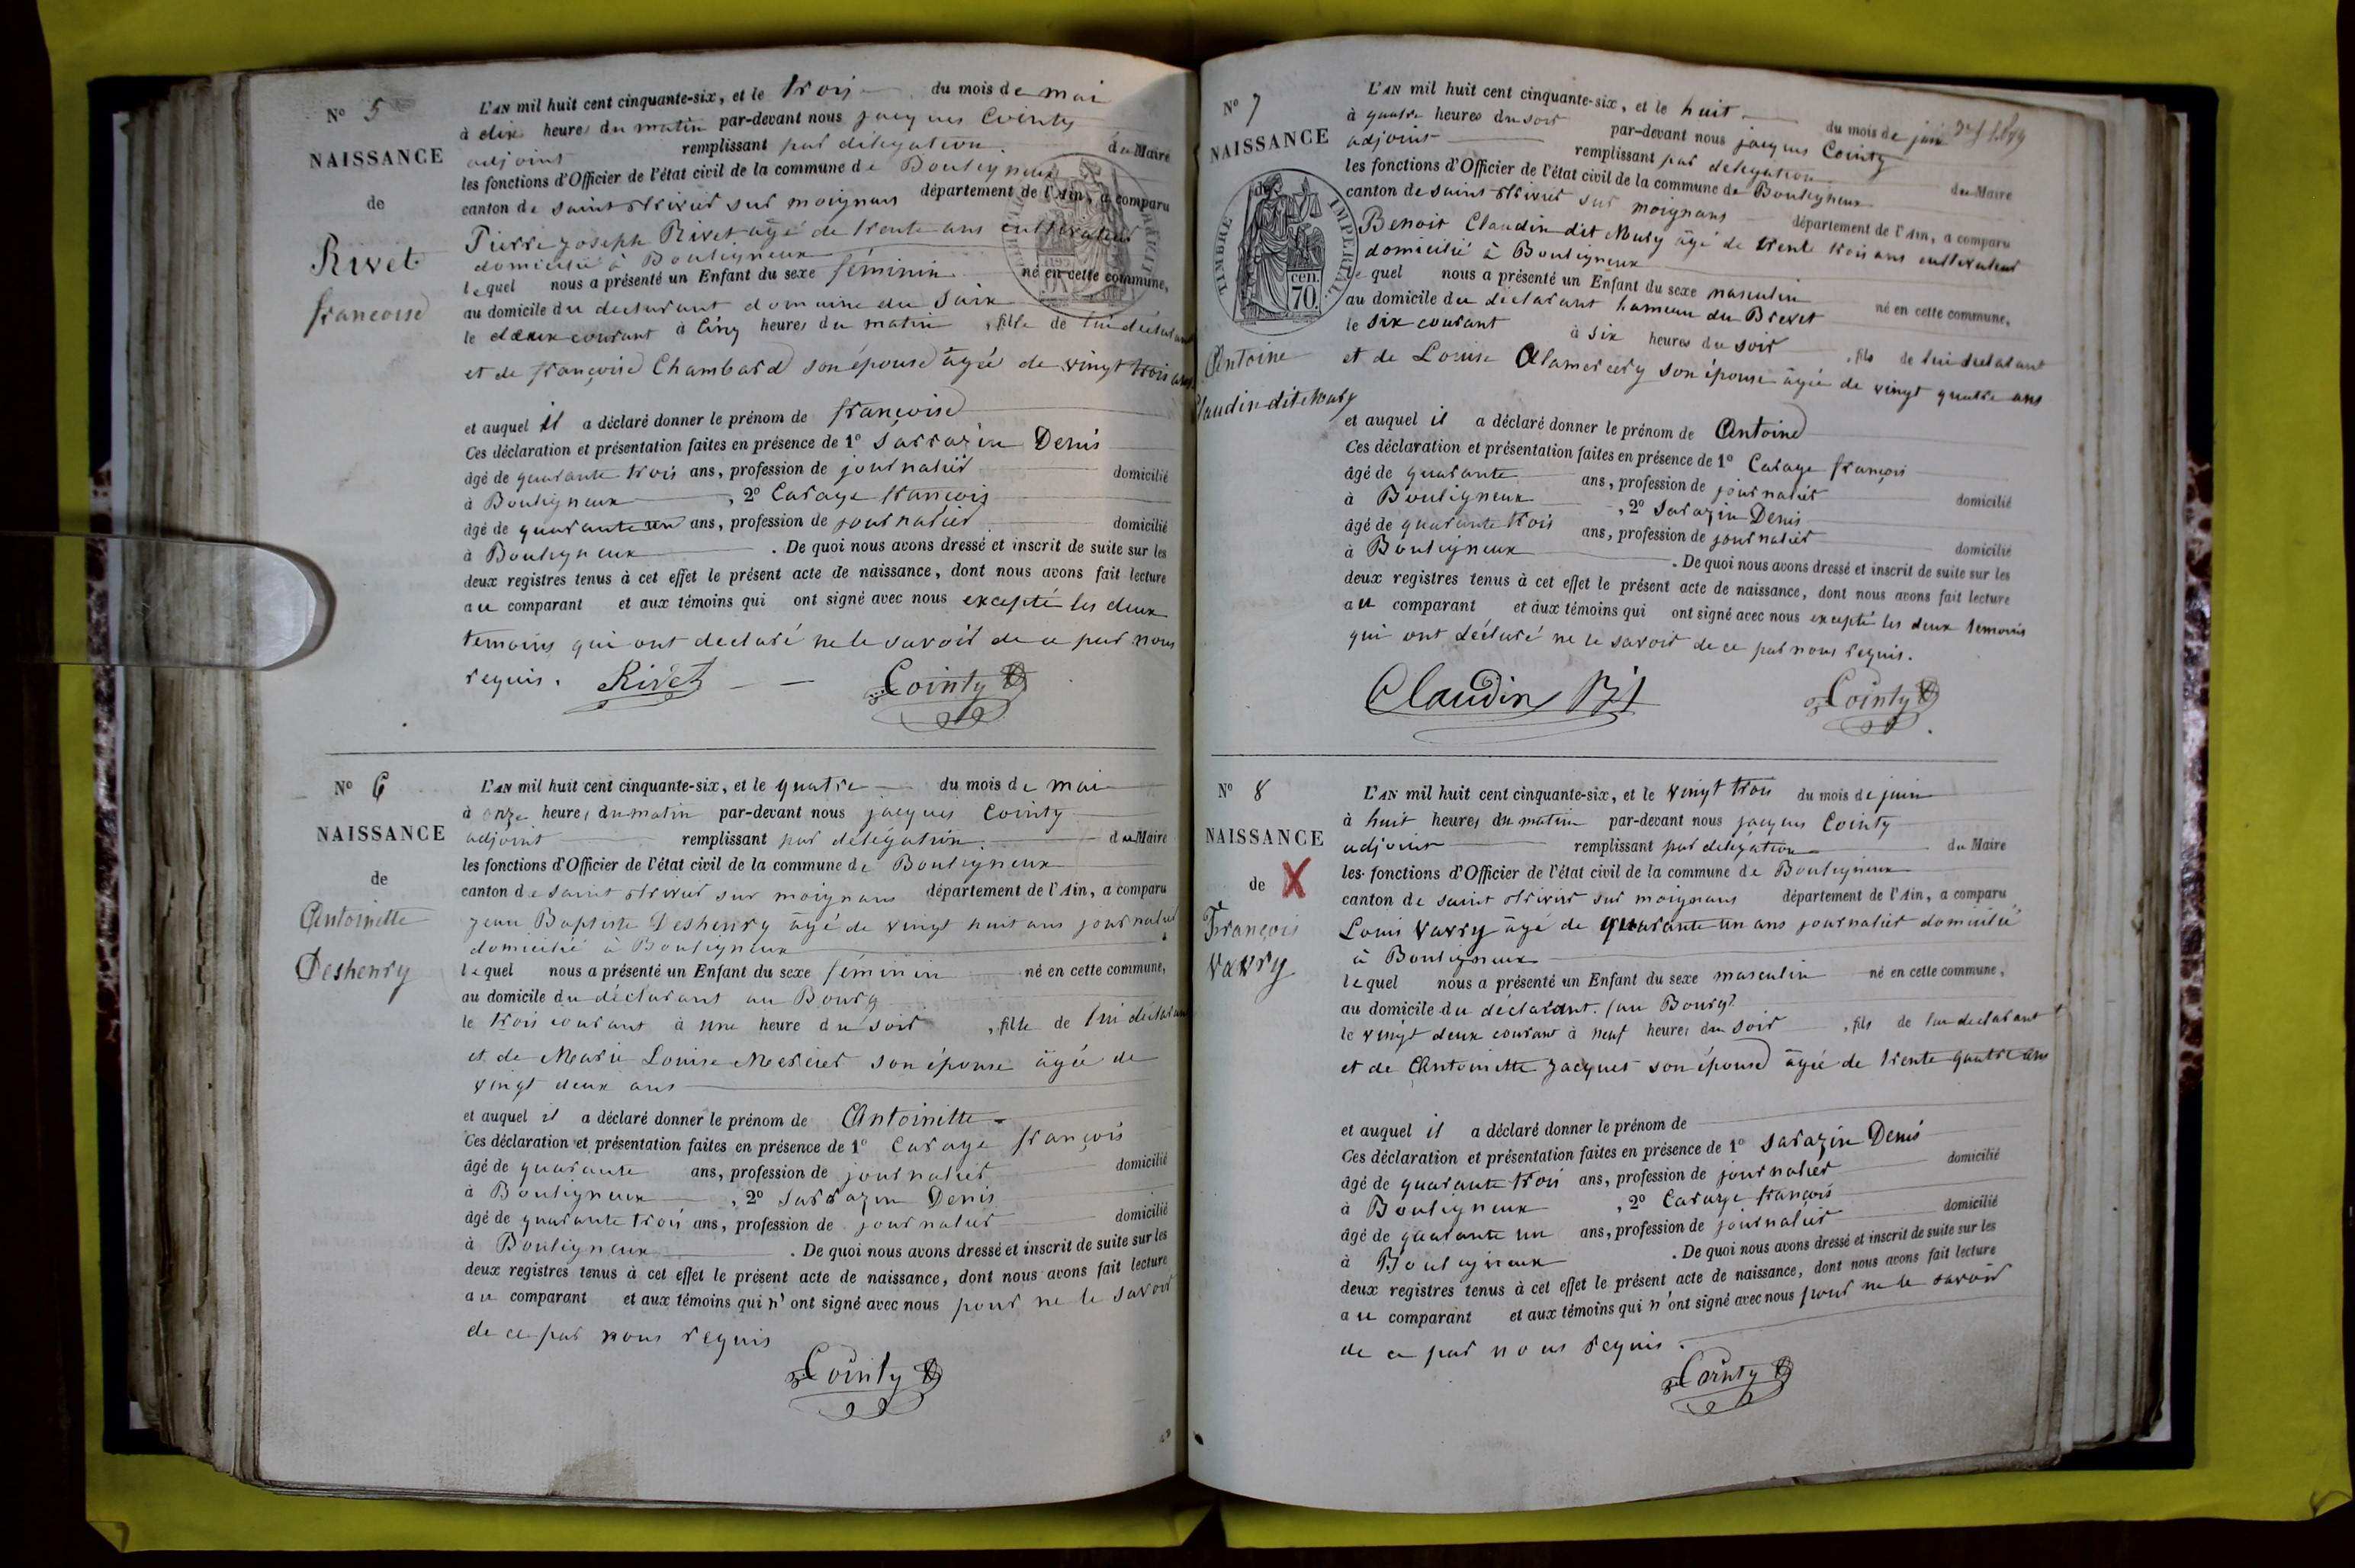 N° 5
NAISSANCE
de
Rivet
françoise
L'AN mil huit cent cinquante-six, et le trois du mois de mai
à dix heures du matin par-devant nous jacques Cointy
adjoint remplissant par délégation du Maire
les fonctions d'Officier de l'état civil de la commune de Bouligneux
canton de saint trivier sur moignans département de l'Ain, a comparu
Pierre joseph Rivet âgé de trente ans cultivateur
domicilié à Bouligneux
lequel nous a présenté un Enfant du sexe féminin né en cette commune,
au domicile du déclarant domaine du
le deux courant à cinq heures du matin, fille de lui déclarant
et de françoise Chambard son épouse âgée de vingt trois ans
et auquel il a déclaré donner le prénom de françoise
Ces déclaration et présentation faites en présence de 1° Sarrazin Denis
âgé de quarante trois ans, profession de journalier domicilié
à Bouligneux, 2° Carage françois
âgé de quarante un ans, profession de journalier domicilié
à Bouligneux. De quoi nous avons dressé et inscrit de suite sur les
deux registres tenus à cet effet le présent acte de naissance, dont nous avons fait lecture
au comparant et aux témoins qui ont signé avec nous excepté les deux
témoins qui ont déclaré ne le savoir de ce par nous
requis. Rivet Cointy
N° 6
NAISSANCE
de
Antoinette
Deshenry
L'AN mil huit cent cinquante-six, et le quatre du mois de mai
à onze heures du matin par-devant nous jacques Cointy
adjoint remplissant par délégation du Maire
les fonctions d'Officier de l'état civil de la commune de Bouligneux
canton de saint trivier sur moignans département de l'Ain, a comparu
jean Baptiste Deshenry âgé de vingt huit ans journalier
domicilié à Bouligneux
lequel nous a présenté un Enfant du sexe féminin né en cette commune,
au domicile du déclarant au Bourg
le trois courant à une heure du soir, fille de lui déclarant
et de Marie Louise Mercier son épouse âgée de
vingt deux ans
et auquel il a déclaré donner le prénom de Antoinette
Ces déclaration et présentation faites en présence de 1° Carage françois
âgé de quarante ans, profession de journalier domicilié
à Bouligneux, 2° Sarrazin Denis
âgé de quarante trois ans, profession de journalier domicilié
à Bouligneux. De quoi nous avons dressé et inscrit de suite sur les
deux registres tenus à cet effet le présent acte de naissance, dont nous avons fait lecture
au comparant et aux témoins qui n'ont signé avec nous pour ne le savoir
de ce par nous requis
Cointy
N° 7
NAISSANCE
de
TIMBRE IMPERIAL
70 cen.
Antoine
Claudin dit Mury
L'AN mil huit cent cinquante-six, et le huit du mois de juin
à quatre heures du soir par-devant nous jacques Cointy
adjoint remplissant par délégation du Maire
les fonctions d'Officier de l'état civil de la commune de Bouligneux
canton de saint trivier sur moignans département de l'Ain, a comparu
Benoit Claudin dit Mury âgé de trente trois ans cultivateur
domicilié à Bouligneux
lequel nous a présenté un Enfant du sexe masculin né en cette commune,
au domicile du déclarant hameau du Brevet
le six courant à six heures du soir, fils de lui déclarant
et de Louise Alamercery son épouse âgée de vingt quatre ans
et auquel il a déclaré donner le prénom de Antoine
Ces déclaration et présentation faites en présence de 1° Carage françois
âgé de quarante ans, profession de journalier domicilié
à Bouligneux, 2° Sarazin Denis
âgé de quarante trois ans, profession de journalier domicilié
à Bouligneux. De quoi nous avons dressé et inscrit de suite sur les
deux registres tenus à cet effet le présent acte de naissance, dont nous avons fait lecture
au comparant et aux témoins qui ont signé avec nous excepté les deux témoins
qui ont déclaré ne le savoir de ce par nous requis.
Claudin Cointy
N° 8
NAISSANCE
de X
François
Vavry
L'AN mil huit cent cinquante-six, et le vingt trois du mois de juin
à huit heures du matin par-devant nous jacques Cointy
adjoint remplissant par délégation du Maire
les fonctions d'Officier de l'état civil de la commune de Bouligneux
canton de saint trivier sur moignans département de l'Ain, a comparu
Louis Vavry âgé de quarante un ans journalier domicilié
à Bouligneux
lequel nous a présenté un Enfant du sexe masculin né en cette commune,
au domicile du déclarant. (au Bourg)
le vingt deux courant à neuf heures du soir, fils de lui declarant
et de Antoinette jacques son épouse âgée de trente quatre ans
et auquel il a déclaré donner le prénom de
Ces déclaration et présentation faites en présence de 1° Sarazin Denis
âgé de quarante trois ans, profession de journalier domicilié
à Bouligneux, 2° Carage françois
âgé de quarante un ans, profession de journalier domicilié
à Bouligneux. De quoi nous avons dressé et inscrit de suite sur les
deux registres tenus à cet effet le présent acte de naissance, dont nous avons fait lecture
au comparant et aux témoins qui n'ont signé avec nous pour ne le savoir
de ce par nous requis.
Cointy